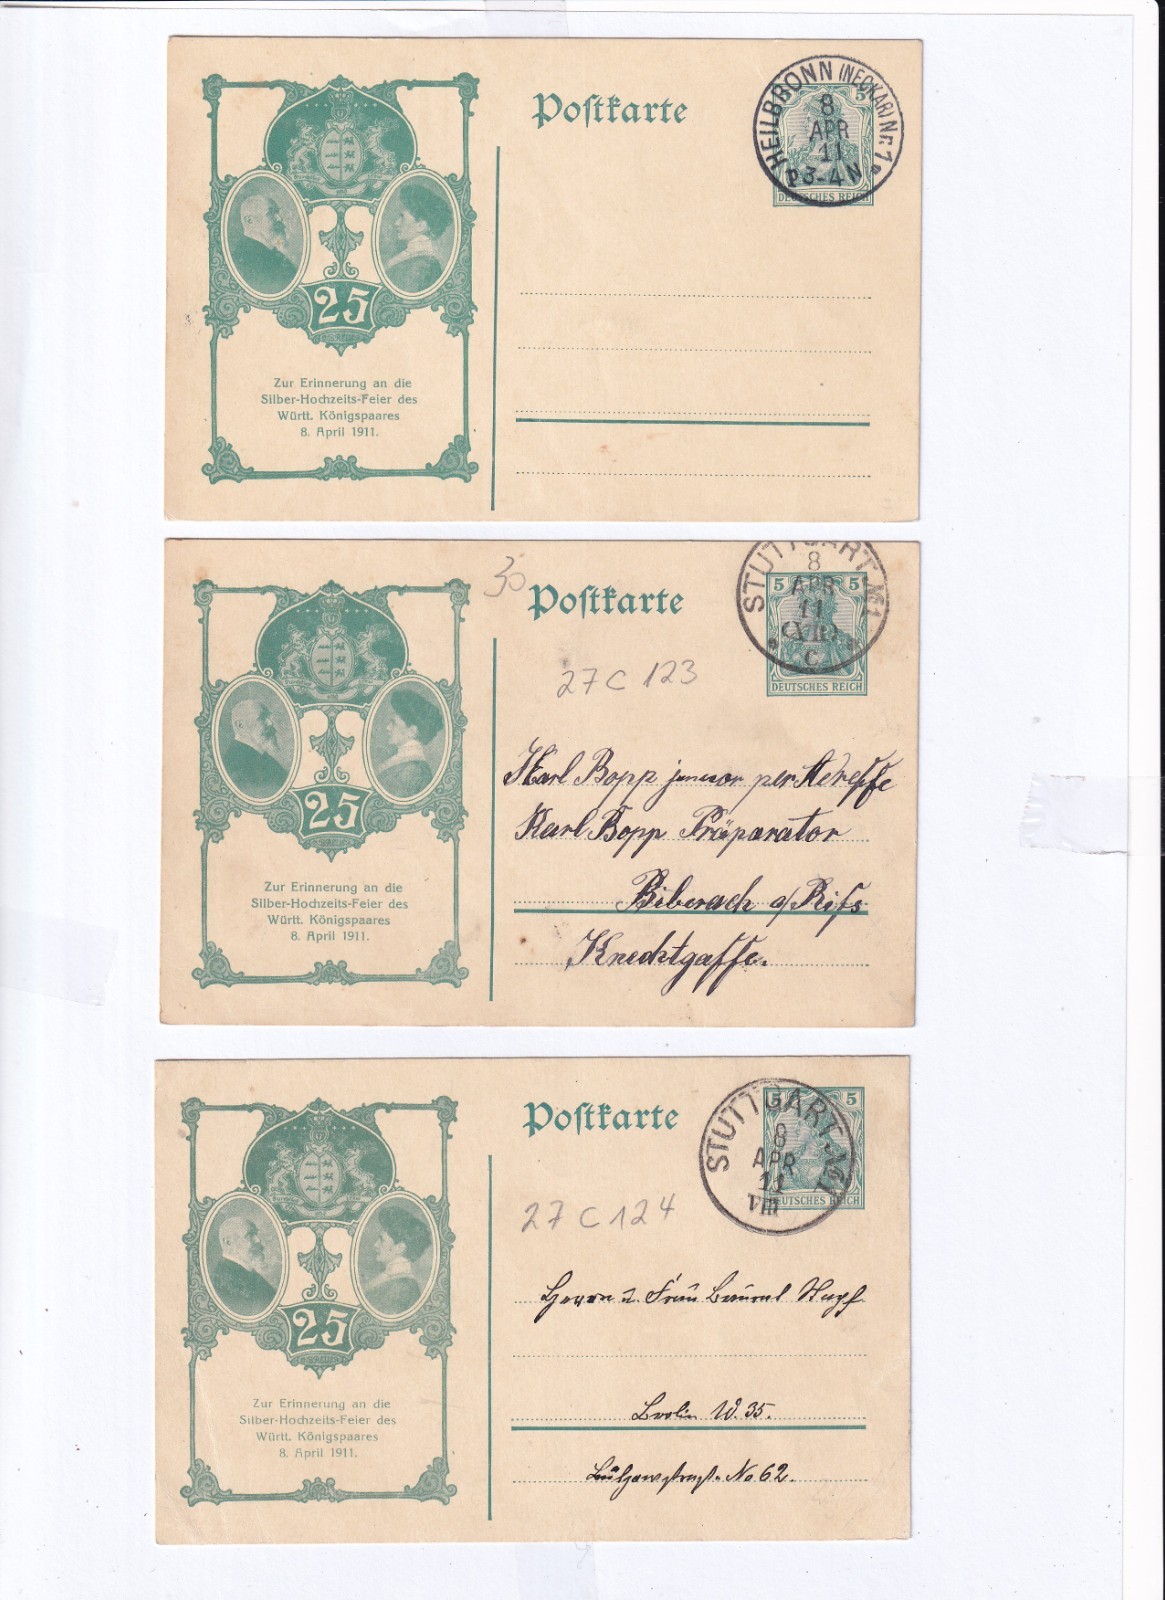 Postkarte
HEILBRONN (NECKAR) Nr. 1
8
APR
11
P 3-4 N
5
DEUTSCHES REICH
25
Zur Erinnerung an die
Silber-Hochzeits-Feier des
Württ. Königspaares
8. April 1911.
30
Postkarte
STUTTGART No. 1
8
APR
11
C
5 5
DEUTSCHES REICH
27 C 123
25
Karl Bopp junior per Adresse
Karl Bopp Präparator
Biberach a/Riß
Knechtgasse.
Zur Erinnerung an die
Silber-Hochzeits-Feier des
Württ. Königspaares
8. April 1911.
Postkarte
STUTTGART
8
APR
11
VIII
5 5
DEUTSCHES REICH
27 C 124
25
Frau
Berlin W. 35.
No 62.
Zur Erinnerung an die
Silber-Hochzeits-Feier des
Württ. Königspaares
8. April 1911.